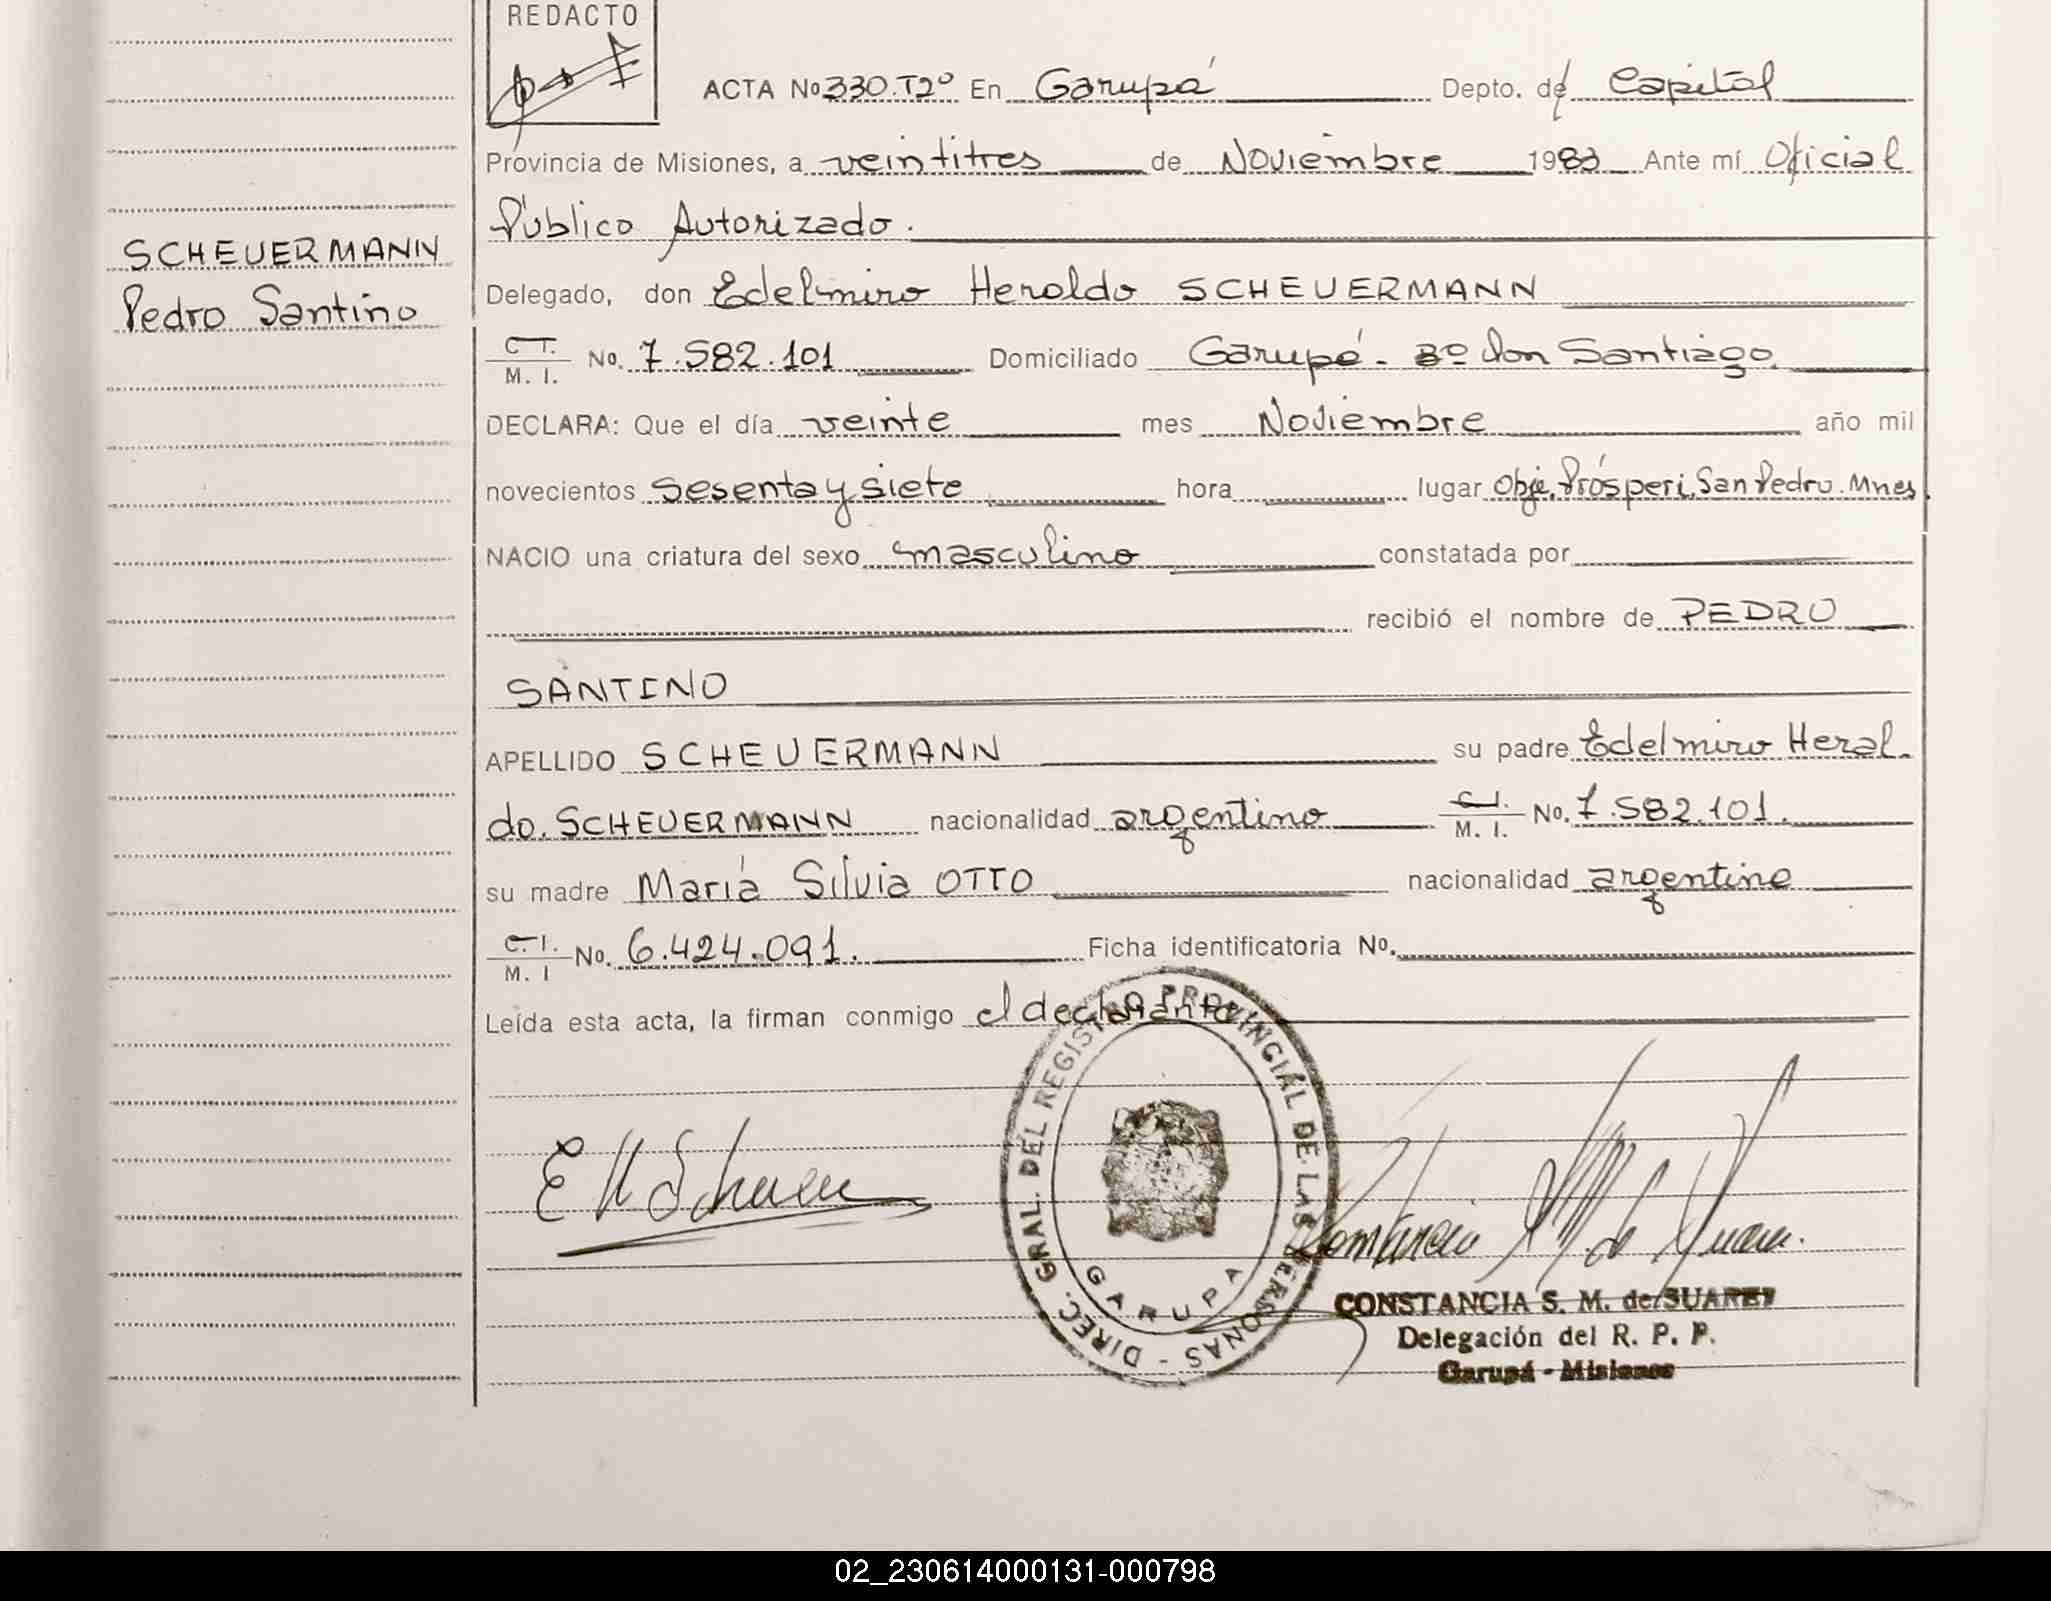 REDACTO
ACTA No 330.T2º En Garupá Depto. de Capital
Provincia de Misiones, a veintitres de Noviembre 1983 Ante mí Oficial
Público Autorizado.
SCHEUERMANN
Pedro Santino
Delegado, don Edelmiro Heroldo SCHEUERMANN
C.I. M. I. No. 7.582.101 Domiciliado Garupá - Bº Don Santiago.
DECLARA: Que el día veinte mes Noviembre año mil
novecientos sesenta y siete hora lugar Obje. Prósperi, San Pedro. Mnes
NACIO una criatura del sexo masculino constatada por
recibió el nombre de PEDRO
SANTINO
APELLIDO SCHEUERMANN su padre Edelmiro Heral-
do. SCHEUERMANN nacionalidad argentino C.I. M. I. No. 7.582.101.
su madre María Silvia OTTO nacionalidad argentina
C.I. M. I No. 6.424.091. Ficha identificatoria No.
Leída esta acta, la firman conmigo el declarante
DIREC. GRAL. DEL REGISTRO PROVINCIAL DE LAS PERSONAS -
GARUPA
CONSTANCIA S. M. de SUAREZ
Delegación del R. P. P.
Garupá - Misiones
02_230614000131-000798